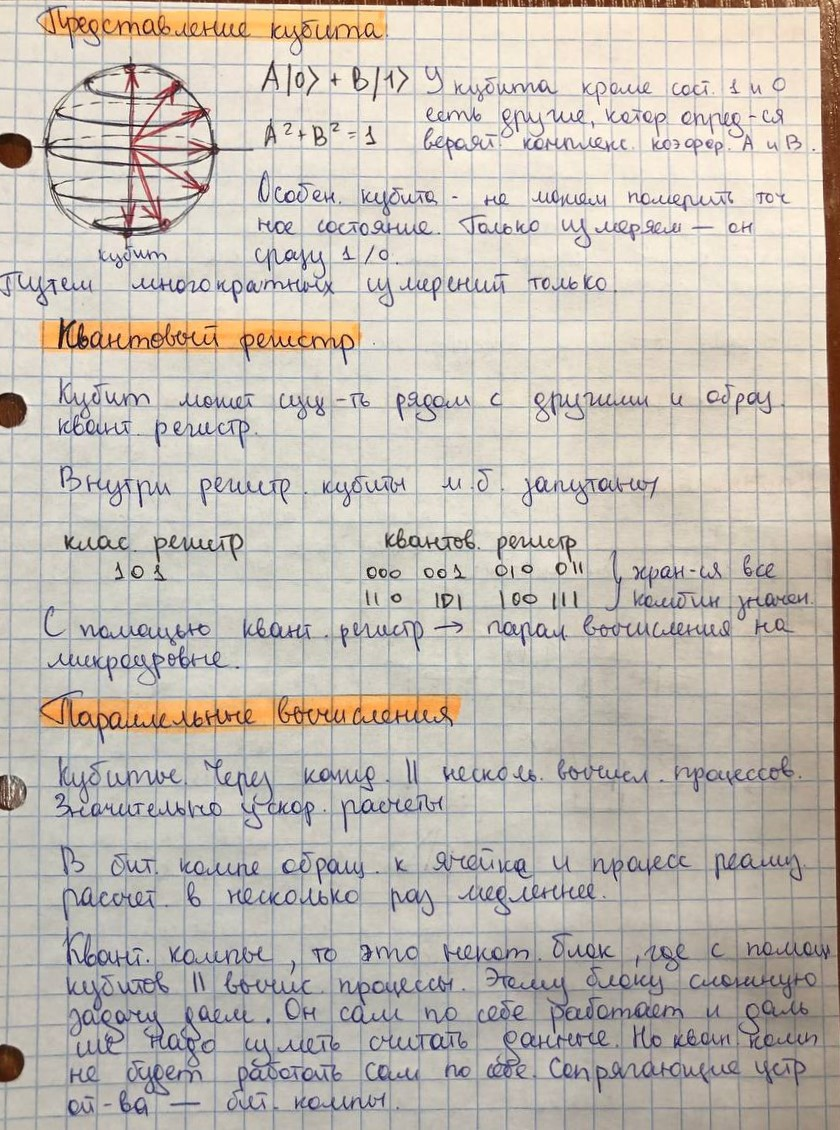 Представление кубита
A|0> + B|1> У кубита кроме сост. 1 и 0
есть другие, котор опред-ся
A² + B² = 1 вероят. комплекс. коэфер. А и В.
Особен. кубита - не можем померить точ
ное состояние. Только измеряем — он
сразу 1/0.
кубит
Путем многократных измерений только.
Квантовый регистр
Кубит может сущ-ть рядом с другими и образ.
квант. регистр.
Внутри регистр. кубиты м.б. запутаны
клас. регистр квантов. регистр
101 000 001 010 011 } хран-ся все
110 101 100 111 комбин значен.
С помощью квант. регистр → парал вычисления на
микроуровне.
Параллельные вычисления
Кубиты. Через кажд. || несколь. вычисл. процессов.
Значительно ускор. расчеты
В бит. компе обращ. к ячейке и процесс реализ.
рассчет в несколько раз медленнее.
Квант. компы, то это некот. блок, где с помощ
кубитов || вычис. процессы. Этому блоку сложную
задачу даем. Он сам по себе работает и даль
ше надо уметь считать данные. Но квант комп
не будет работать сам по себе. Сопрягающие устр
ой-ва — бит. компы.